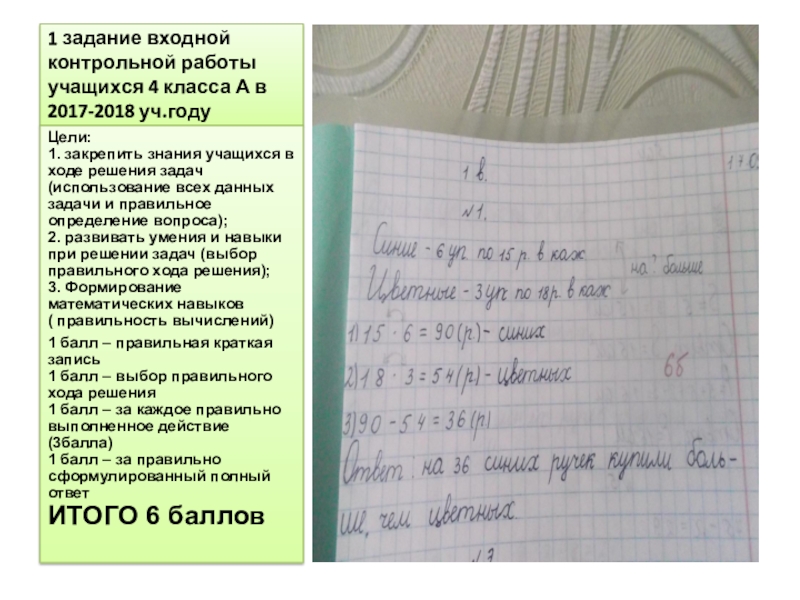 1 задание входной
контрольной работы
учащихся 4 класса А в
2017-2018 уч.году
Цели:
1. закрепить знания учащихся в
ходе решения задач
(использование всех данных
задачи и правильное
определение вопроса);
2. развивать умения и навыки
при решении задач (выбор
правильного хода решения);
3. Формирование
математических навыков
( правильность вычислений)
1 балл – правильная краткая
запись
1 балл – выбор правильного
хода решения
1 балл – за каждое правильно
выполненное действие
(3балла)
1 балл – за правильно
сформулированный полный
ответ
ИТОГО 6 баллов
1 в.
№1.
Синие - 6 уп по 15 р. в каж
на ? больше
Цветные - 3 уп по 18 р. в каж
1) 15 · 6 = 90 (р.) - синих
2) 18 · 3 = 54 (р) - цветных
6б
3) 90 - 54 = 36 (р)
Ответ: на 36 синих ручек купили боль-
ше, чем цветных